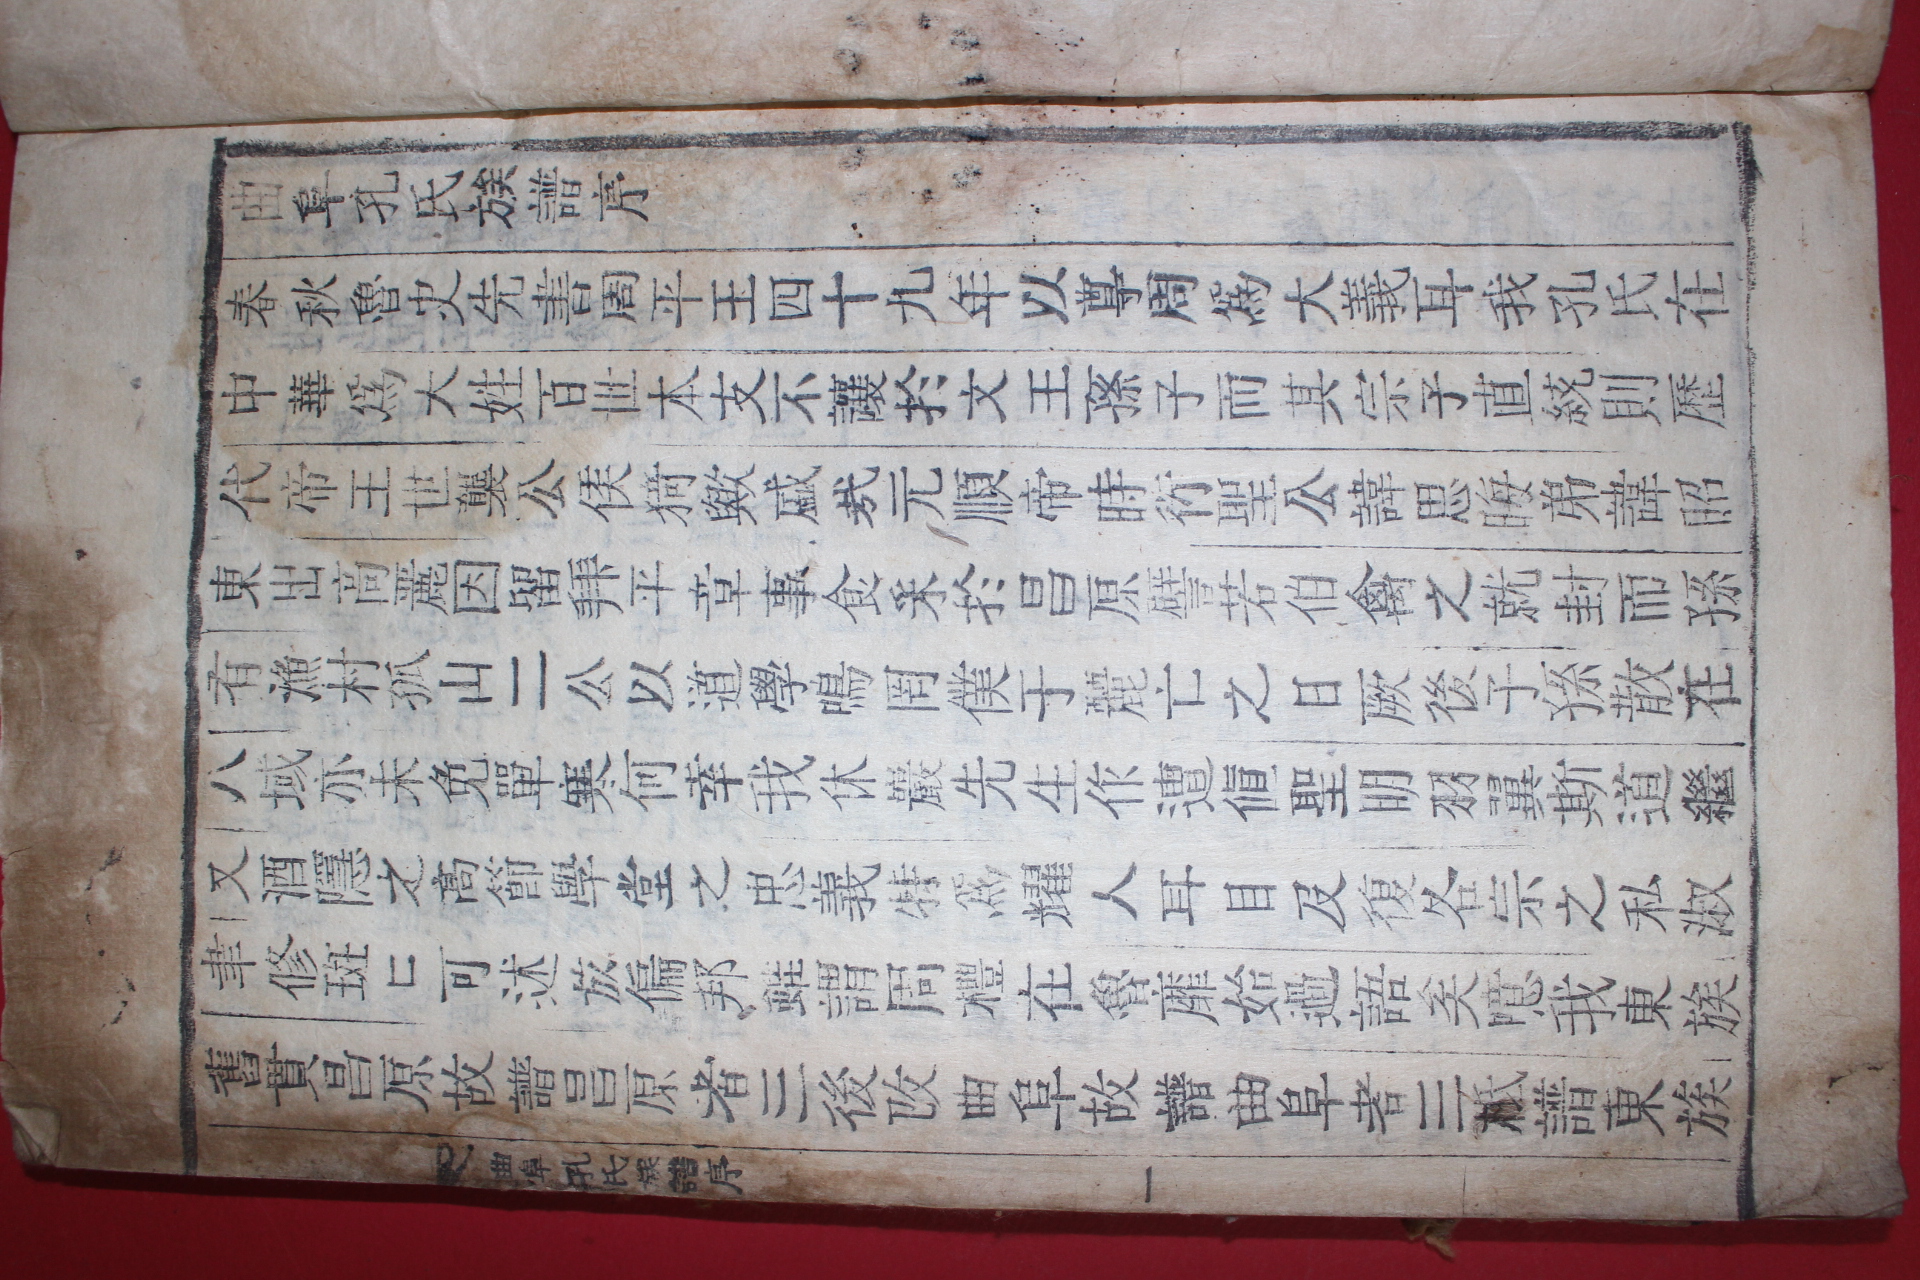 曲阜孔氏族譜序
春秋魯史先書周平王四十九年以尊周爲大義耳我孔氏在
中華爲大姓百世本支不讓於文王孫子而其宗子直統則歷
代帝王世襲公侯猗歟盛哉元順帝時衍聖公諱思晦弟諱昭
東出高麗因留拜平章事食采於昌原譬若伯禽之就封而孫
有漁村孤山二公以道學鳴罔僕于麗亡之日厥後子孫散在
八域亦未免單寒何幸我休巖先生作遭値聖明羽翼斯道繼
又酒隱之高節學堂之忠義特爲耀人耳目及復各宗之私淑
聿修斑斑可述於偏邦雖謂周禮在魯靡始過語矣噫我東族
舊貫昌原故譜昌原者二後改曲阜故譜曲阜者三 譜東族
曲阜孔氏族譜序
一